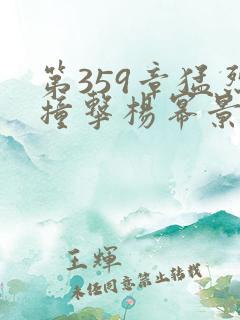 第359章猛烈
撞擊楊冪景
王輝
未经同意禁止转载